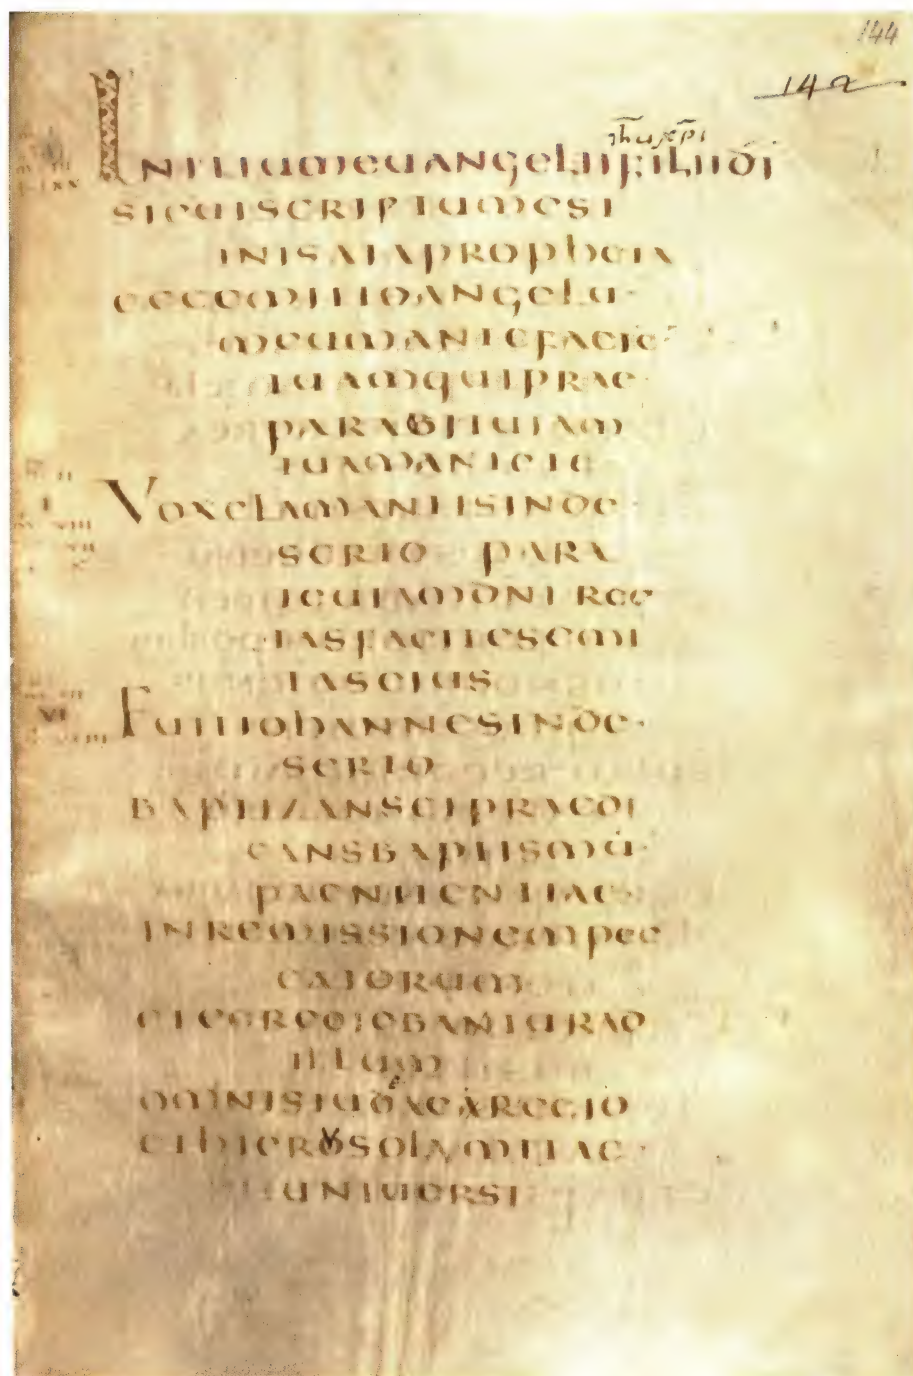 144
142
ihu xpi
INITIUMEUANGELIIFILIIDI
SICUTSCRIPTUMEST
INISAIAPROPHETA
ECCEMITTOANGELU·
MEUMANTEFACIE
TUAMQUIPRAE·
PARABITUIAM
TUAMANTETE
VOXCLAMANTISINDE·
SERTO PARA
TEUIAMDNIREC
TASFACITESEMI
TASEIUS
FUITIOHANNESINDE·
SERTO
BAPTIZANSETPRAEDI
CANSBAPTISMU·
PAENITENTIAE·
INREMISSIONEMPEC
CATORUM
ETEGREDIEBANTURAD
ILLUM
OMNISIUDAEAREGIO
ETHIEROSOLYMITAE·
UNIUERSI